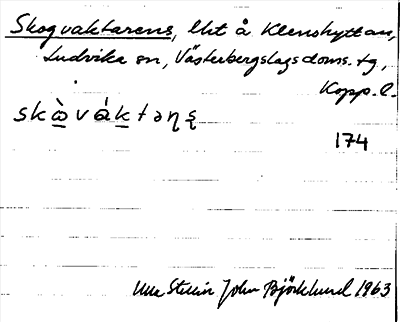 Skogvaktarens, lht å Klenshyttan,
Ludvika sn, Västerbergslags doms. tg,
Kopp. l.
skὰ̲vák̲təɳȿ
174
Ulla Stellin John Björklund 1963